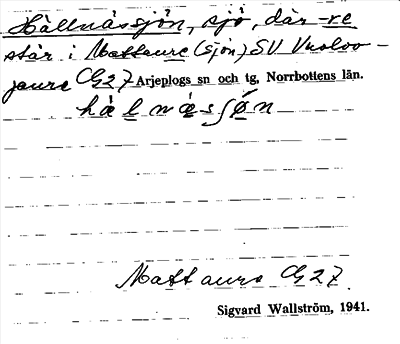 Hällnässjön, sjö, där -re
står i Mattaure (sjön) SV Vuolvo-
jaure G27 Arjeplogs sn och tg, Norrbottens län.
Mattaure G27.
Sigvard Wallström, 1941.